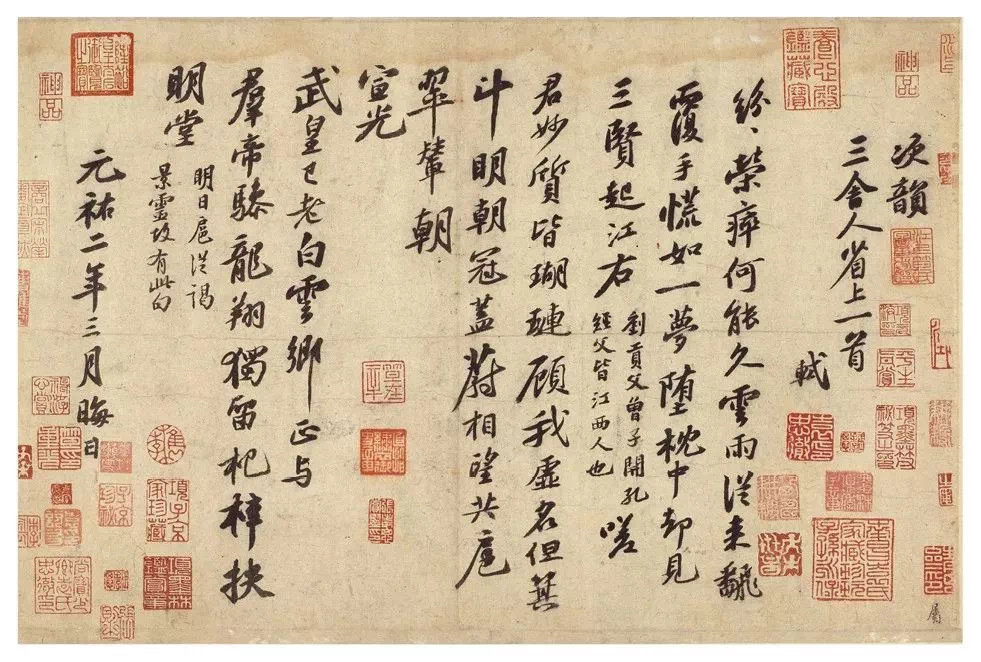 次韻
三舍人省上一首
軾
紛〻榮瘁何能久雲雨從來翻
覆手慌如一夢墮枕中却見
三賢起江右
劉貢父曾子開孔
經父皆江西人也
嗟
君妙質皆瑚璉顧我虛名但箕
斗明朝冠蓋蔚相望共扈
翠輦朝
宣光
武皇已老白雲鄉正与
羣帝驂龍翔獨留杞梓扶
明堂
明日扈從謁
景靈故有此句
元祐二年三月晦日
神品
神品
養心殿鑑藏寶
項子京家珍藏